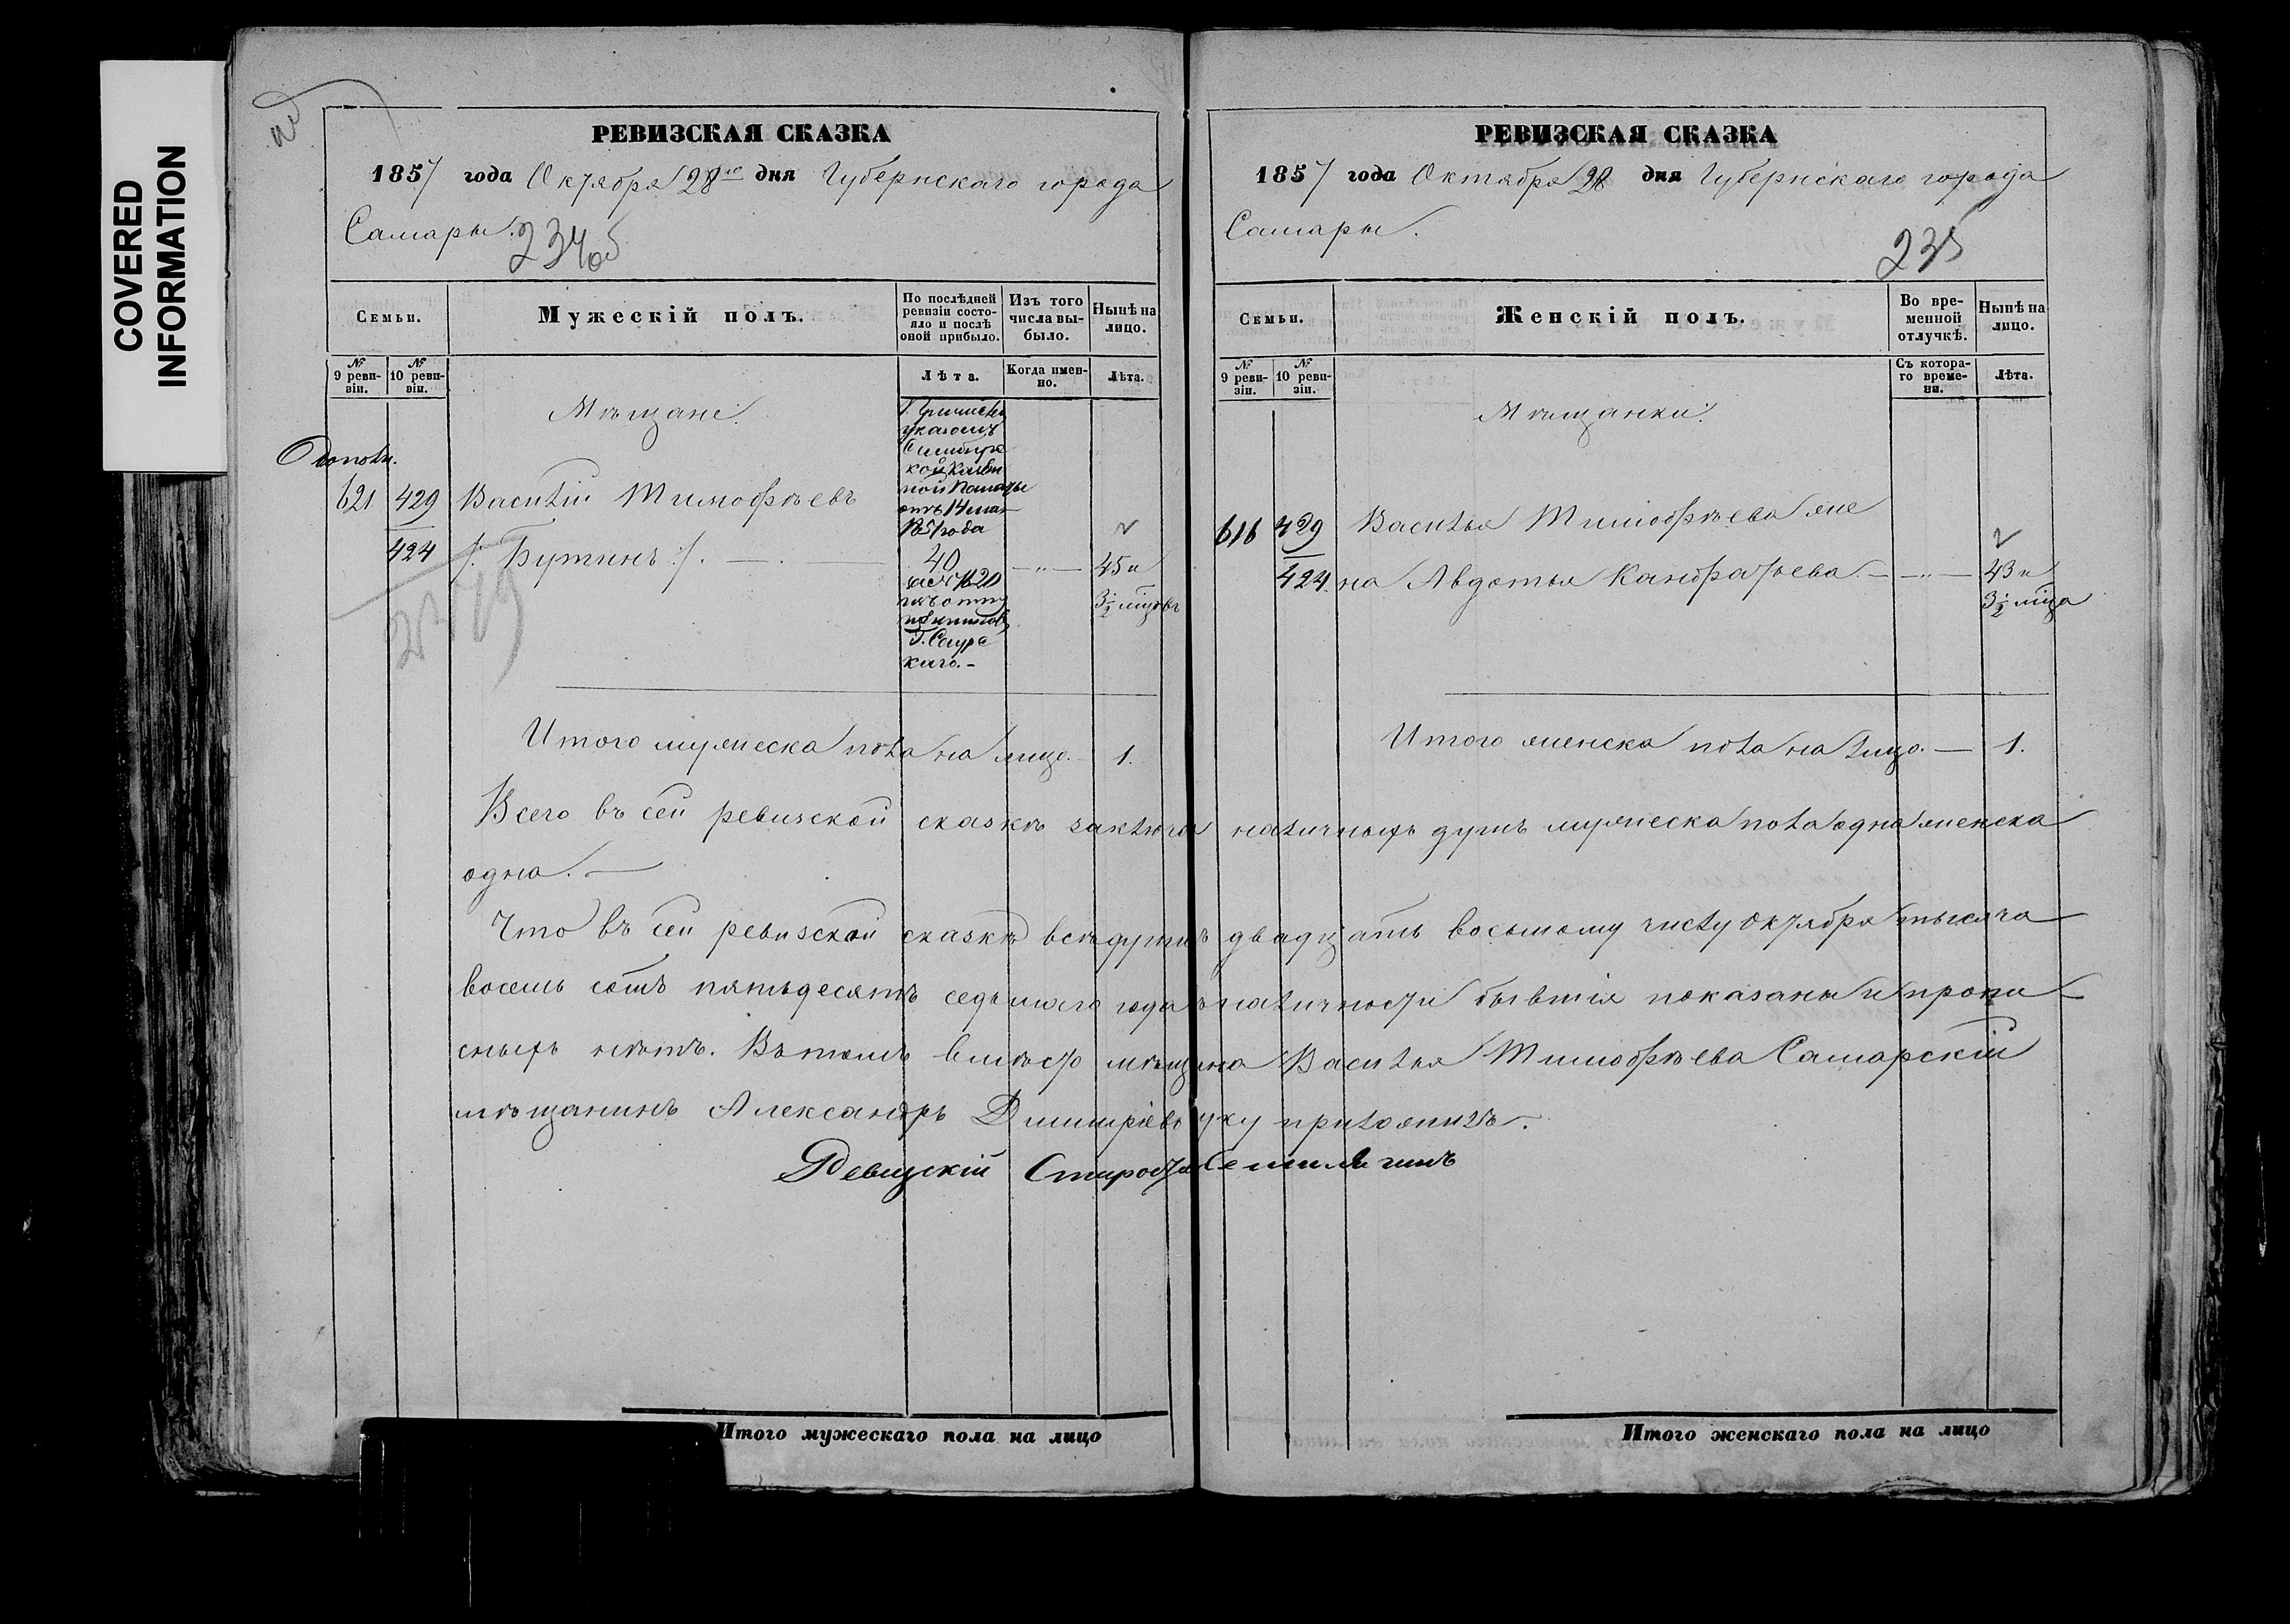 COVERED
INFORMATION
РЕВИЗСКАЯ СКАЗКА
1857 года Октября 28го дня Губернскаго города
Самары.
234об
Семьи.
Мужескій полъ.
По послѣдней ревизіи состояло и послѣ оной прибыло.
Изъ того числа выбыло.
Нынѣ на лицо.
№ 9 ревизіи.
№ 10 ревизіи.
Лѣта.
Когда именно.
Лѣта.
Мѣщане.
Дополн.
621 429 Василій Тимофѣевъ
424 /: Бутинъ :/.
указомъ
Симбирс
кой Казен
ной Палаты
отъ 14 мая
1851 года
40
45 и
3½ мѣцовъ
Итого мужеска пола на лицо. 1.
РЕВИЗСКАЯ СКАЗКА
1857 года Октября 28 дня Губернскаго города
Самары.
235
Семьи.
Женскій полъ.
Во временной отлучкѣ.
Нынѣ на лицо.
№ 9 ревизіи.
№ 10 ревизіи.
Съ котораго времени.
Лѣта.
Мѣщанки.
616 429 Василья Тимофѣева же
424. на Авдотья Кандратьева. — 43 и
3½ мѣца
Итого женска пола на лицо. — 1.
Всего въ сей ревизской сказкѣ заключ наличныхъ душъ мужеска пола одна женска
одна. —
Что въ сей ревизской сказкѣ всѣ души двадцать восьмому числу Октября тысяча
восемь сотъ пятьдесятъ седьмаго года наличности бывшія показаны и пропи
сныхъ нѣтъ. Въ томъ вмѣсто мѣщина Василья Тимофѣева Самарскій
мѣщанинъ Александръ Димитріевъ уку приложилъ.
Ревизскій Староста
Итого мужескаго пола на лицо
Итого женскаго пола на лицо